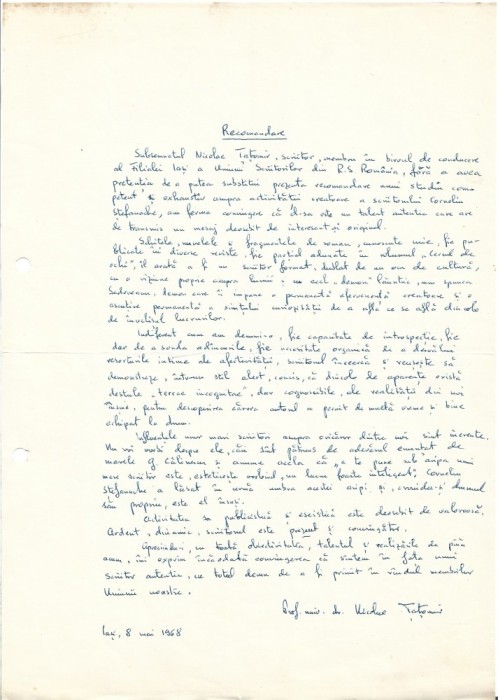 Recomandare
Subsemnatul Nicolae Țațomir, scriitor, membru în biroul de conducere
al Filialei Iași a Uniunii Scriitorilor din R.S. România, fără a avea
pretenția de a putea substitui prezenta recomandare unui studiu competent
și exhaustiv asupra activității creatoare a scriitorului Corneliu
Ștefanache, am ferma convingere că d-sa este un talent autentic care are
de transmis un mesaj deosebit de interesant și original.
Schițele, nuvelele și fragmentele de roman, cunoscute mie, fie publicate
în diverse reviste, fie parțial adunate în volumul „Cercul de
ochi", îl arată a fi un scriitor format, dublat de un om de cultură,
cu o viziune proprie asupra lumii și cu acel „demon" lăuntric, cum spunea
Sadoveanu, demon care îi impune o permanentă efervescență creatoare și o
ascuțire permanentă a simțului curiozității de a afla ce se află dincolo
de învelișul lucrurilor.
Indiferent cum am denumi-o, fie capacitate de introspecție, fie
dar de a sonda adâncurile, fie necesitate organică de a dezvălui
resorturile intime ale afectivității, scriitorul încearcă și reușește să
demonstreze, într-un stil alert, concis, că dincolo de aparențe există
destule „terrae incognitae", dar cognoscibile, ale realității din noi
înșine, pentru descoperirea cărora autorul a pornit de multă vreme și bine
echipat la drum.
Influențele unor mari scriitori asupra oricăror dintre noi sînt increate.
Nu voi vorbi despre ele, căci sînt pătruns de adevărul enunțat de
marele G. Călinescu și anume acela că „a te pune sub aripa unui
mare scriitor este, esteticește vorbind, un lucru foarte inteligent". Corneliu
Ștefanache a lăsat în urmă umbra acestei aripi și, croindu-și drumul
său propriu, este el însuși.
Activitatea sa publicistică și eseistică este deosebit de valoroasă.
Ardent, dinamic, scriitorul este prezent și convingător.
Apreciindu-i, cu toată obiectivitatea, talentul și realizările de până
acum, îmi exprim încăodată convingerea că sîntem în fața unui
scriitor autentic, cu totul demn de a fi primit în rîndul membrilor
Uniunii noastre.
Prof. univ. dr. Nicolae Țațomir
Iași, 8 mai 1968